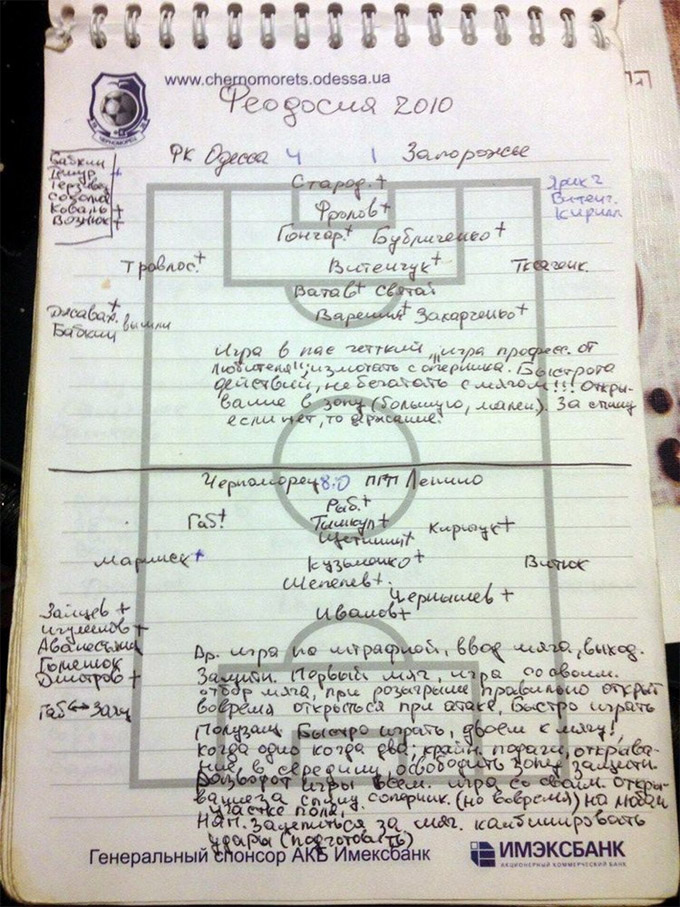 www.chernomorets.odessa.ua
ЧЕРНОМОРЕЦ
Феодосия 2010
РК Одесса 4 1 Запорожье
Бабкин
Тимур +
Терзи
Соболь
Коваль +
Вознюк +
Ярик 2
Витенг.
Кирилл
Старод. +
Фролов +
Гончар. + Бубличенко +
Травлос. + Витенчук + Ткаченк.
Ватав + Святой
Варенин + Захарченко +
Джавах. +
Бабкин вышли
Игра в пас четкий, "игра професс. от
любителя", измотать соперника. Быстрота
действий, не бегать с мячом!!! Откры-
вание в зону (большую, мален). За спину
если нет, то держание.
Черноморец 8:0 ПГТ Ленино
Раб. +
Габ. + Тимкул + Кирчук +
Щетинин +
Маринск + Кузьменко + Витюк
Шепелев +.
Чернышев +
Иванов +
Зайцев +
Игуменов +
Аванесян
Гоменюк
Дмитров +
Габ ↔ Зайц
Вр. игра на штрафной, ввод мяча, выход.
Защитн. Первый мяч, игра со своим.
отбор мяча, при розыгрыше правильно открыт
вовремя открыться при атаке, быстро играть
Полузащ. Быстро играть, двоем к мячу!
когда одно когда два; крайн. подачи, открыва-
ние в середину, освободить зону защитн.
Разворот игры всем. игра со своим. откры-
вание за спину соперник. (но вовремя) на любом
участке поля,
Нап. Зацепиться за мяч. комбинировать
удары (подготовать)
Генеральный спонсор АКБ Имексбанк
ИМЭКСБАНК
АКЦИОНЕРНЫЙ КОММЕРЧЕСКИЙ БАНК